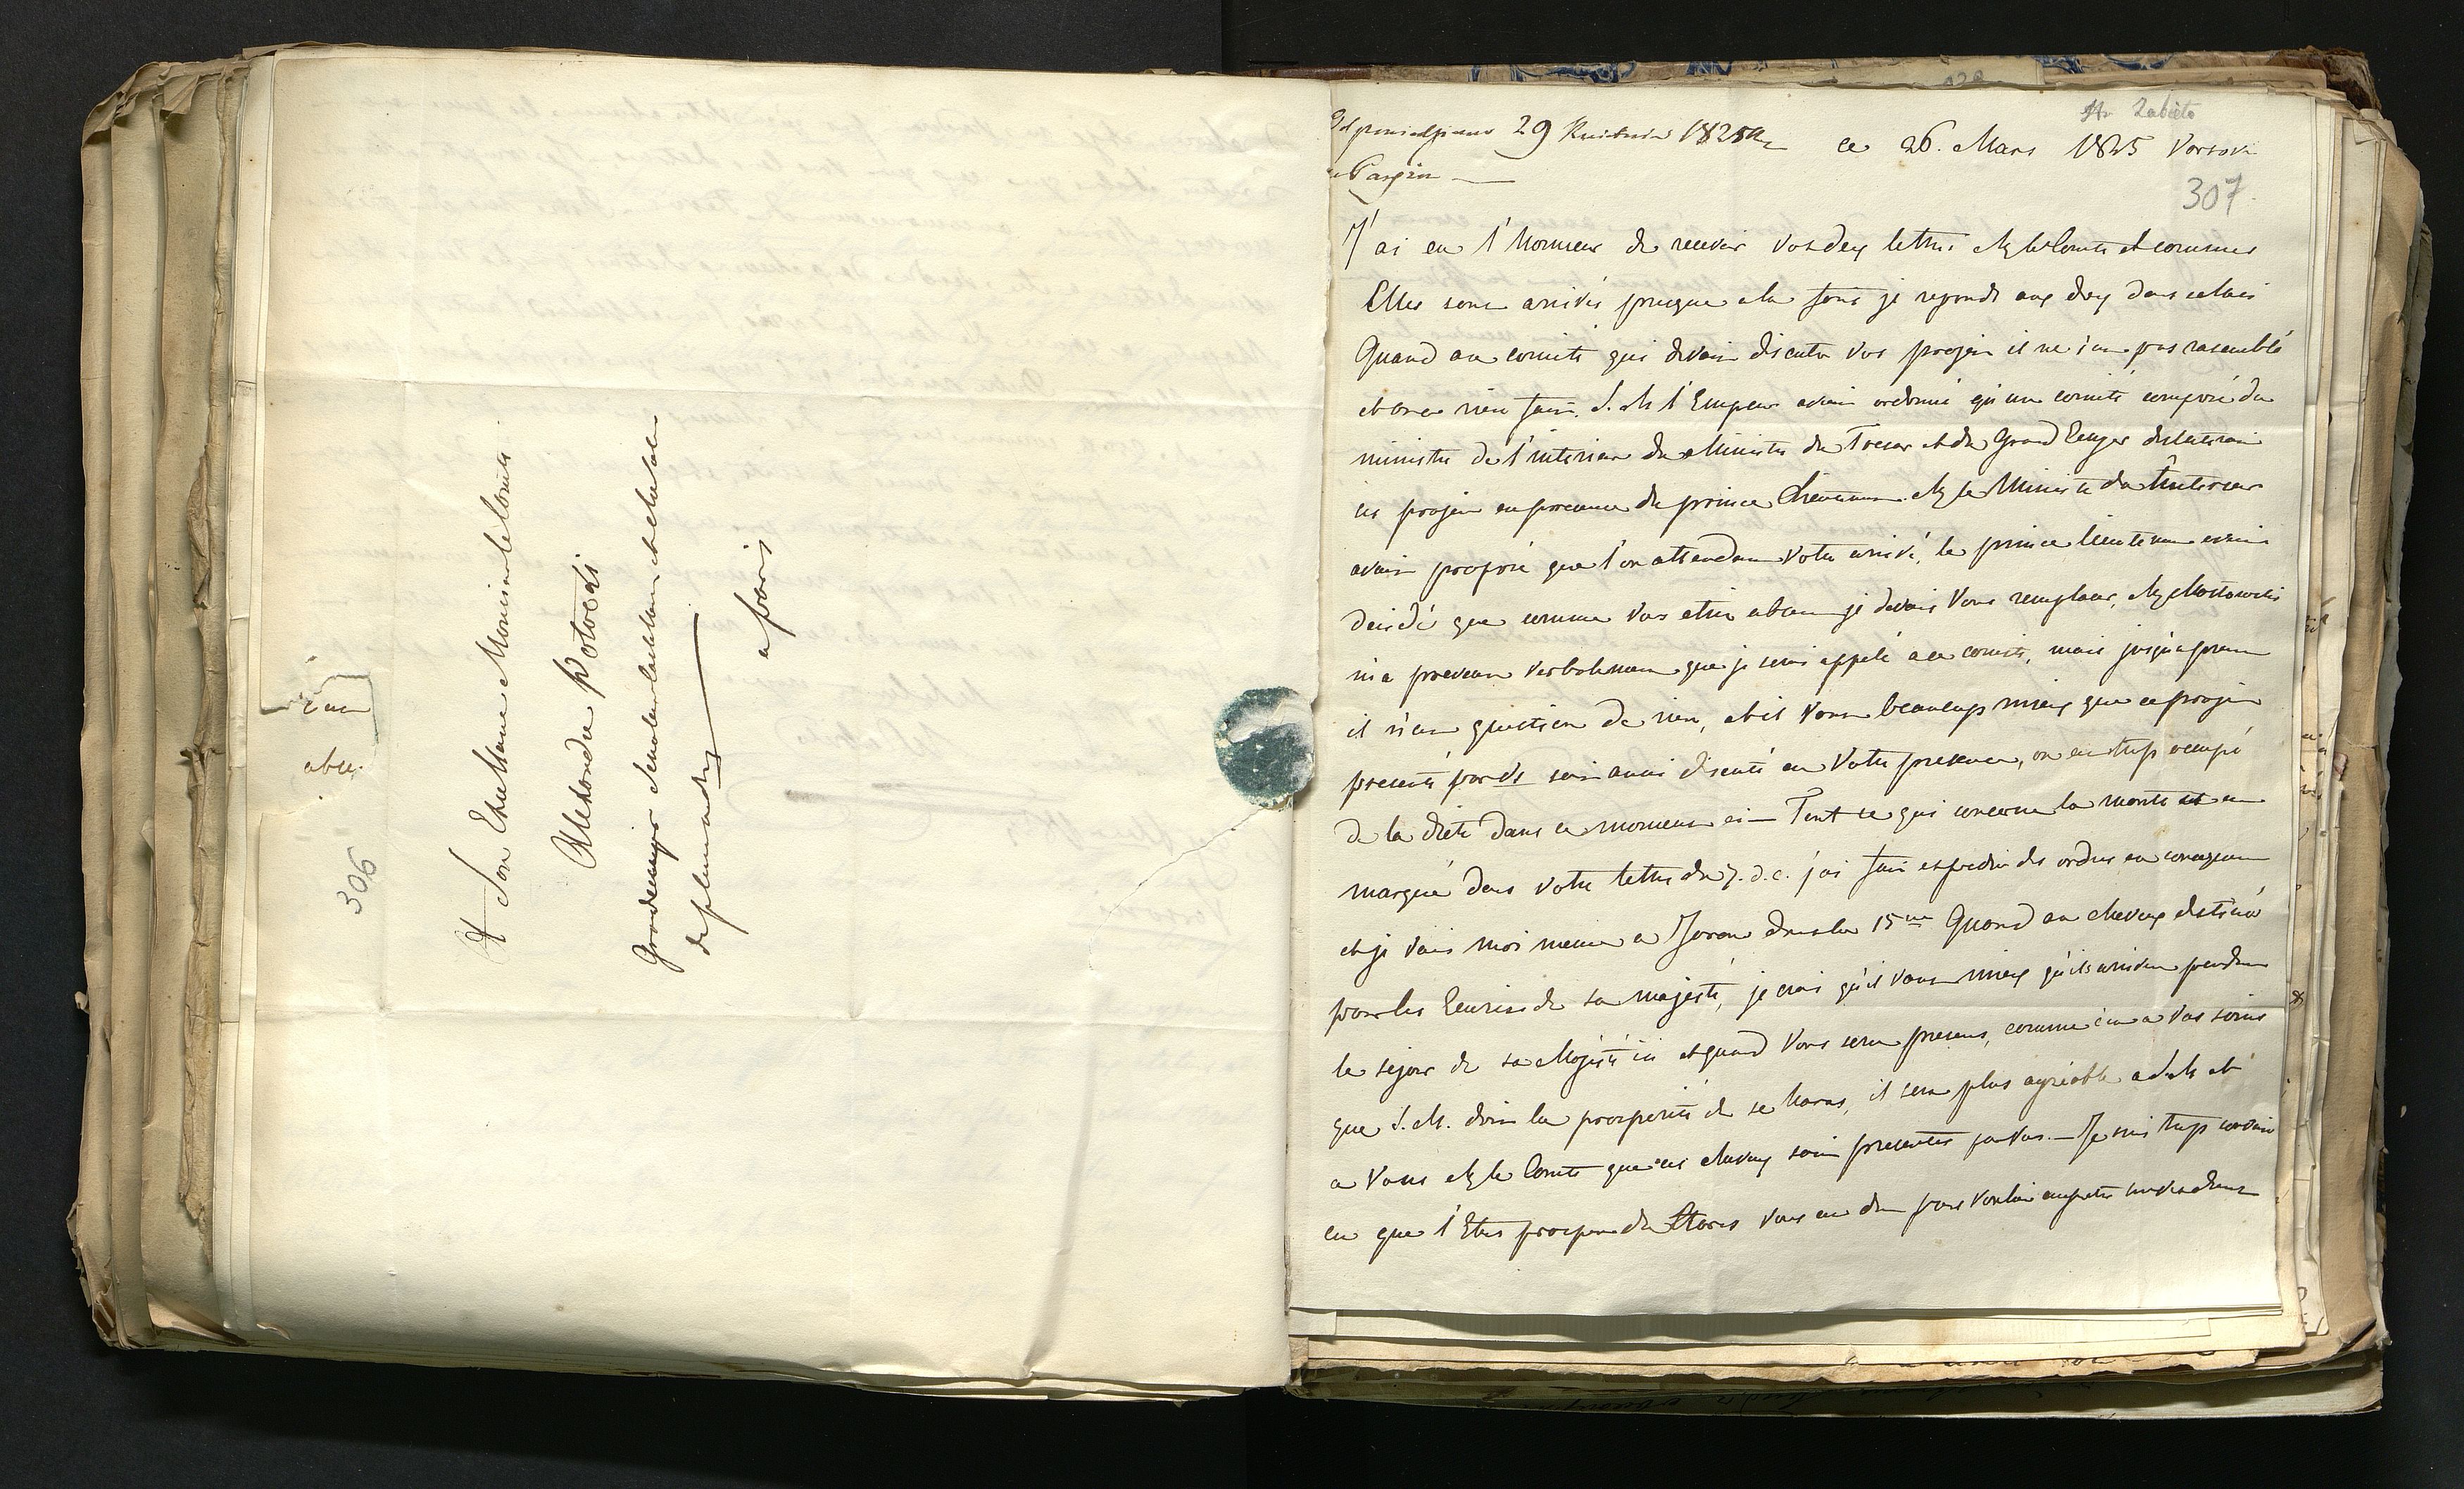 A Son Exellance Monsieur le Comte
Alexandre Potocki
Grand ecuyer Senateur Castellan et chevalier
de plusieurs
a paris
306
abse
Odpowiedziano 29 Kwietnia 1825
Paryża
Hr Zabiełło
ce 26. Mars 1825 Varsovie
307
J'ai eu l'honneur de recevoir vos deux lettres Mr le Comte et comme
Elles sont arrivés presque a la fois je reponds aux deux dans celle ci
Quand au comité qui devait discuter vos projets il ne s'est pas rasemblé
et on a rien fait. S. M. l'Empereur avait ordonné qu'un comité composé du
ministre de l'interieur du Ministre du Tresor et du Grand Ecuyer
ces projets en presence du prince Lieutenant. Mr le Ministre de l'interieur
avait proposé que l'on attendat votre arrivé, le prince lieutenant avait
decidé que comme vous etiez absent je devais Vous remplacer, Mr Mostowski
m'a prevenu verbalement que je serai appelé a ce comité, mais jusqu'a present
il n'est question de rien, et il vaut beaucoup mieux que ce projet
presenté par Vs soit aussi discuté en Votre presence, on est trop occupé
de la diete dans ce moment ci — Tout ce qui concerne la monte et est
marqué dans votre lettre du 7. d. c. j'ai fait expedier des ordres en consequence
et je vais moi meme a Janow dans le 15 Quand au chevaux destinés
pour les Ecuries de sa majesté, je crois qu'il vaut mieux qu'ils arrivent pendant
le sejour de sa Majesté ici et quand Vous serez present, comme c'est a vos soins
que S. M. doit la prosperité de se haras, il sera plus agréable a S. M. et
a Vous Mr le Comte que ces chevaux soient presentés par Vous. — Je suis trop
en que l'Etat prospere du Haras vous est du pour vouloir